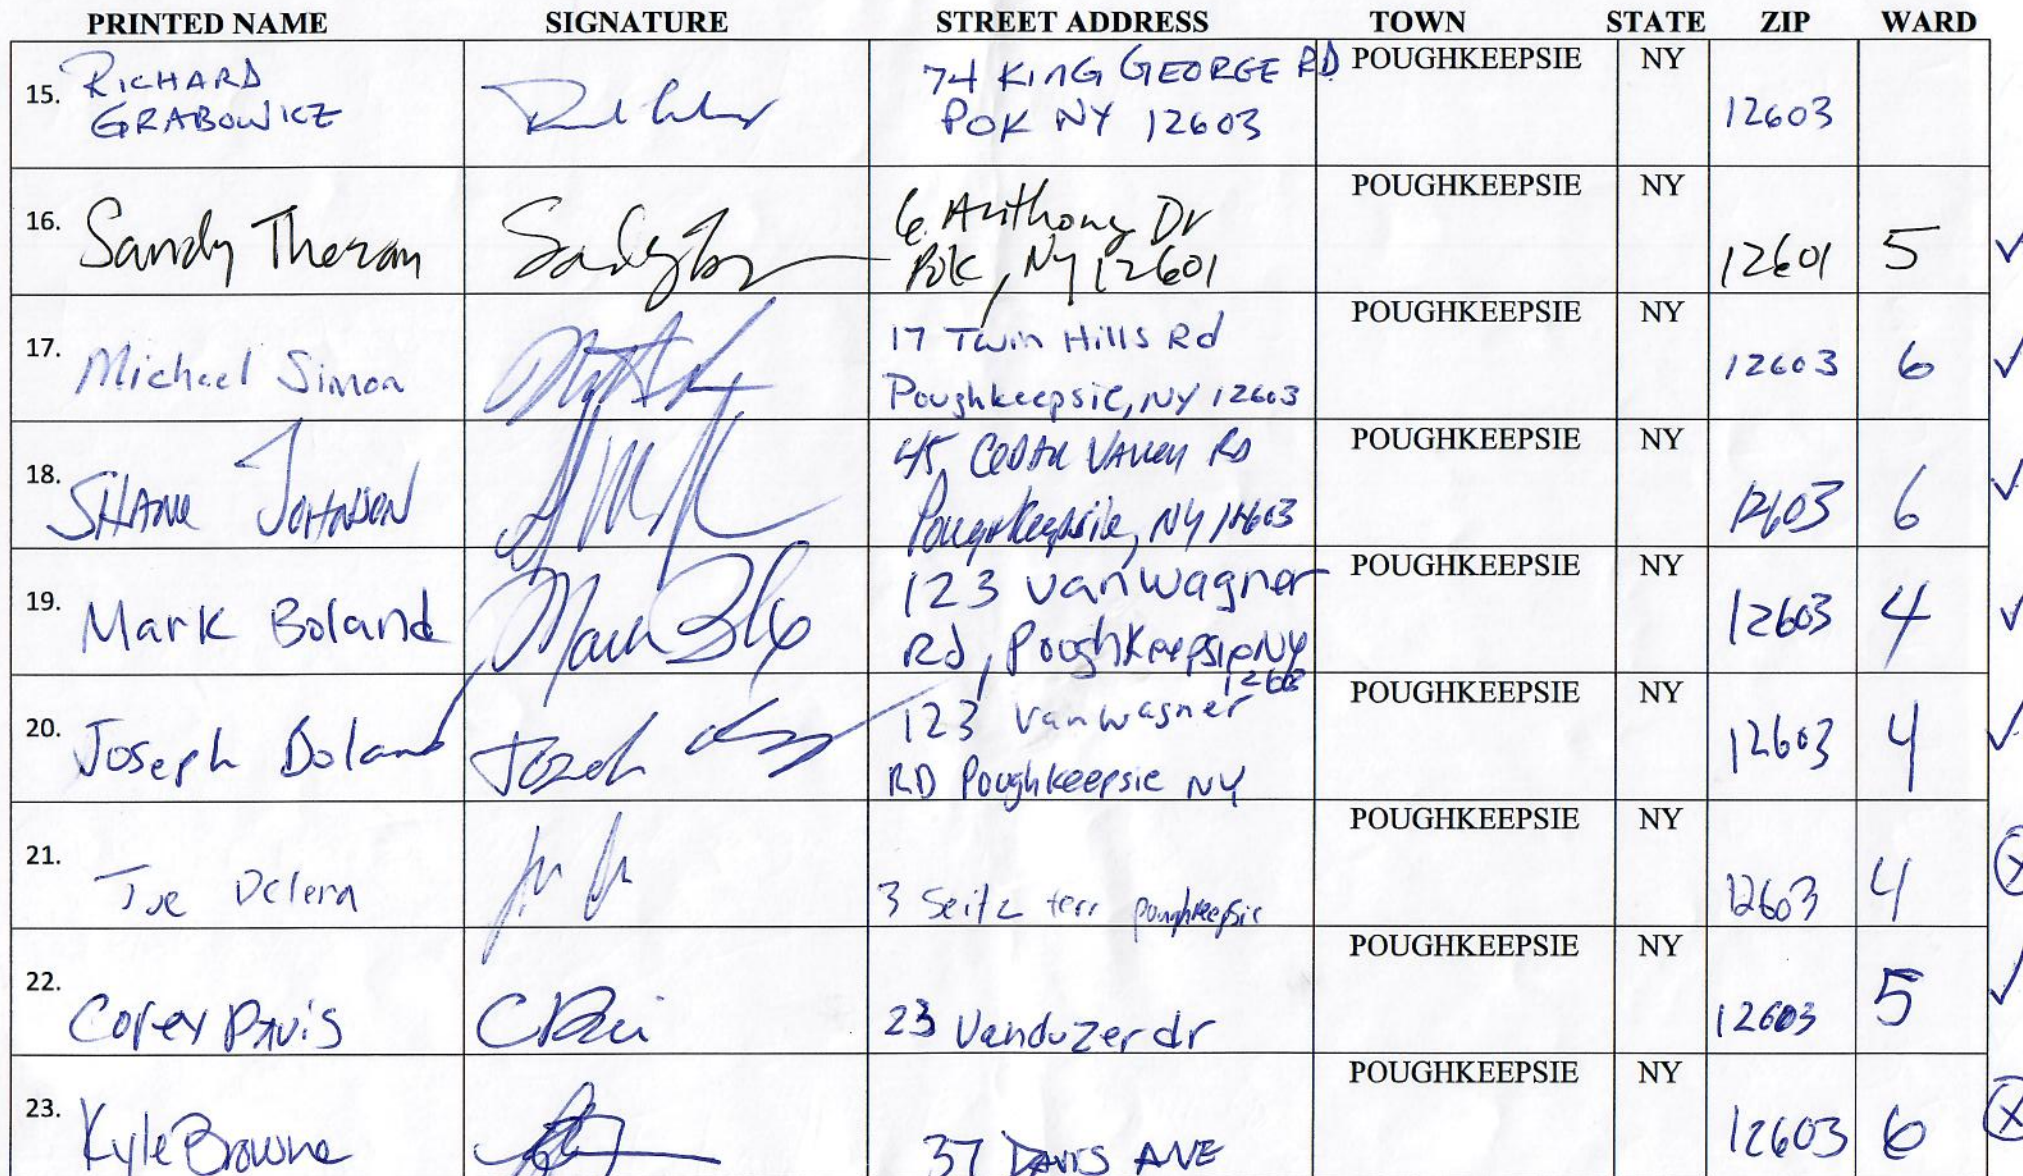 PRINTED NAME SIGNATURE STREET ADDRESS TOWN STATE ZIP WARD
15. RICHARD GRABOWICZ 74 KING GEORGE RD POK NY 12603 POUGHKEEPSIE NY 12603
16. Sandy Theran 6 Anthony Dr Pok, NY 12601 POUGHKEEPSIE NY 12601 5 ✓
17. Michael Simon 17 Twin Hills Rd Poughkeepsie, NY 12603 POUGHKEEPSIE NY 12603 6 ✓
18. SHANE JOHNSON 45 CEDAR VALLEY RD Poughkeepsie, NY 12603 POUGHKEEPSIE NY 12603 6 ✓
19. Mark Boland Mark 123 Van Wagner Rd, Poughkeepsie NY 12603 POUGHKEEPSIE NY 12603 4 ✓
20. Joseph Boland Joseph 123 Van Wagner RD Poughkeepsie NY POUGHKEEPSIE NY 12603 4 ✓
21. Joe Delera 3 Seitz terr poughkeepsie POUGHKEEPSIE NY 12603 4 X
22. Corey Davis 23 Vanduzer dr POUGHKEEPSIE NY 12603 5 ✓
23. Kyle Browne 37 DAVIS AVE POUGHKEEPSIE NY 12603 6 X